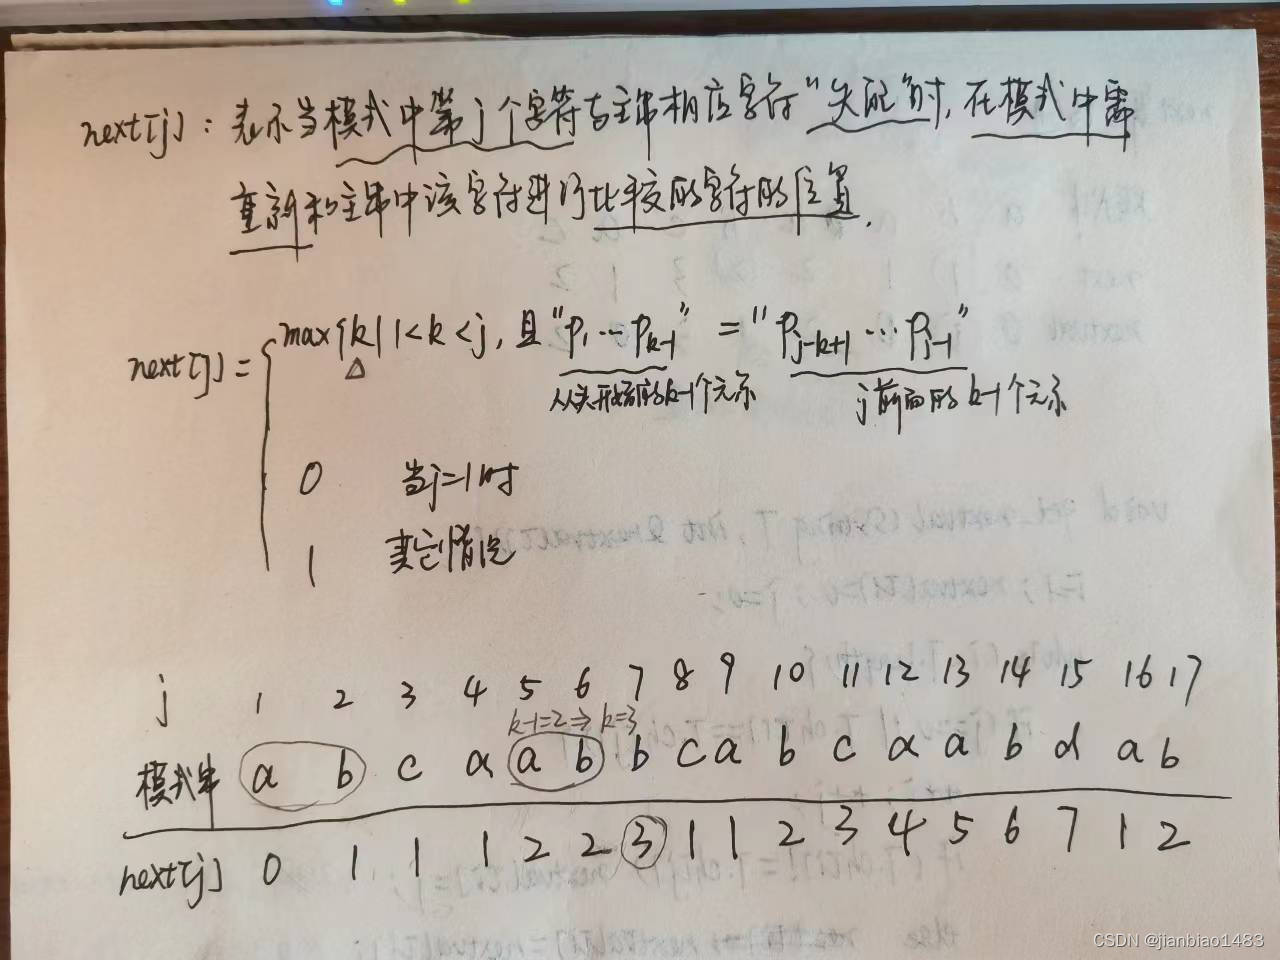 next[j]：表示当模式中第j个字符与主串相应字符"失配"时，在模式中需
重新和主串中该字符进行比较的字符的位置.
max{k|1<k<j，且"p1…pk-1" = "pj-k+1…pj-1"
next[j]=
从头开始的k-1个元素 j前面的k-1个元素
0 当j=1时
1 其它情况
j 1 2 3 4 5 6 7 8 9 10 11 12 13 14 15 16 17
k-1=2⇒k=3
模式串 a b c a a b b c a b c a a b d a b
next[j] 0 1 1 1 2 2 3 1 1 2 3 4 5 6 7 1 2
CSDN @jianbiao1483